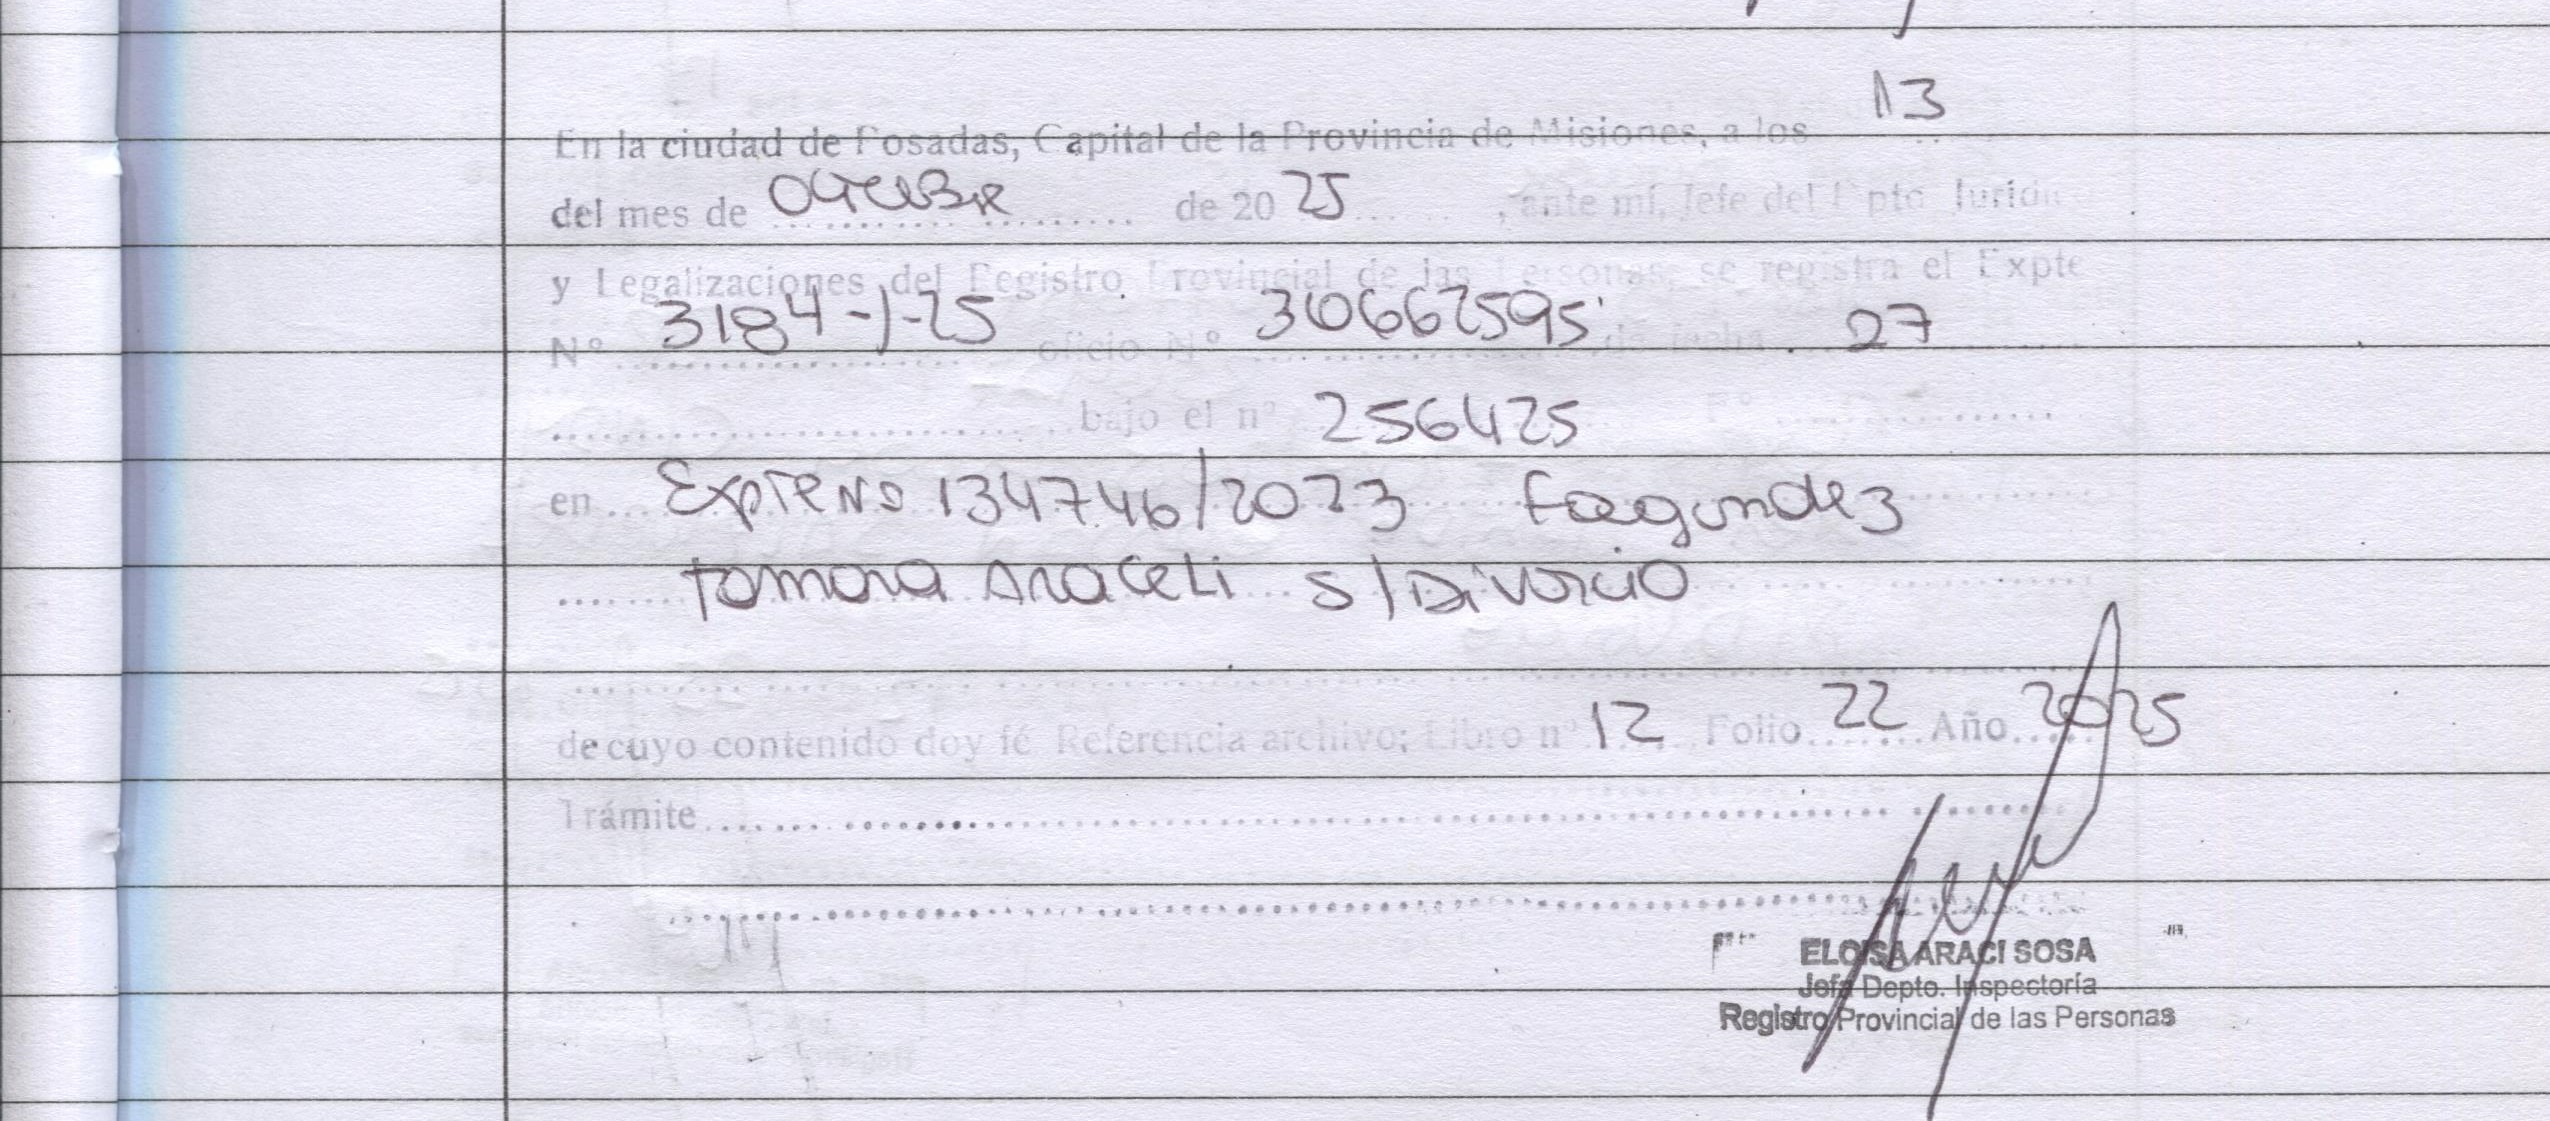 13
En la ciudad de Posadas, Capital de la Provincia de Misiones, a los
del mes de Octubre de 20 25, ante mí, Jefe del Dpto Juridi
y Legalizaciones del Registro Provincial de las Personas, se registra el Expte
Nº 3184-J-25 oficio Nº 306662595 de fecha 27
bajo el nº 256425 Fº
en Expte No 134746/2023 Fagundez
Tamara Araceli S/Divorcio
de cuyo contenido doy fé Referencia archivo: Libro nº 12 Folio 22 Año 2025
Trámite
ELOISA ARACI SOSA
Jefa Depto. Inspectoría
Registro Provincial de las Personas